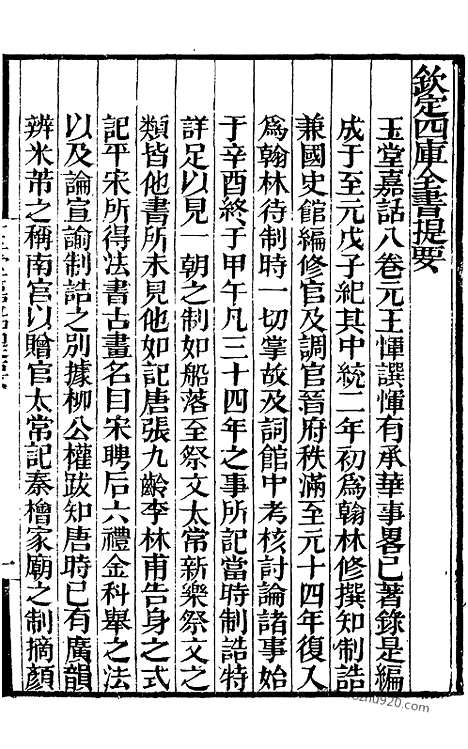 欽定四庫全書提要
玉堂嘉話八卷元王惲譔惲有承華事畧已著錄是編
成于至元戊子紀其中統二年初爲翰林修撰知制誥
兼國史館編修官及調官晉府秩滿至元十四年復入
爲翰林待制時一切掌故及詞館中考核討論諸事始
于辛酉終于甲午凡三十四年之事所記當時制誥特
詳足以見一朝之制如船落至祭文太常新樂祭文之
類皆他書所未見他如記唐張九齡李林甫告身之式
記平宋所得法書古畫名目宋聘后六禮金科舉之法
以及論宣諭制誥之別據柳公權跋知唐時已有廣韻
辨米芾之稱南宮以贈官太常記秦檜家廟之制摘顔
一